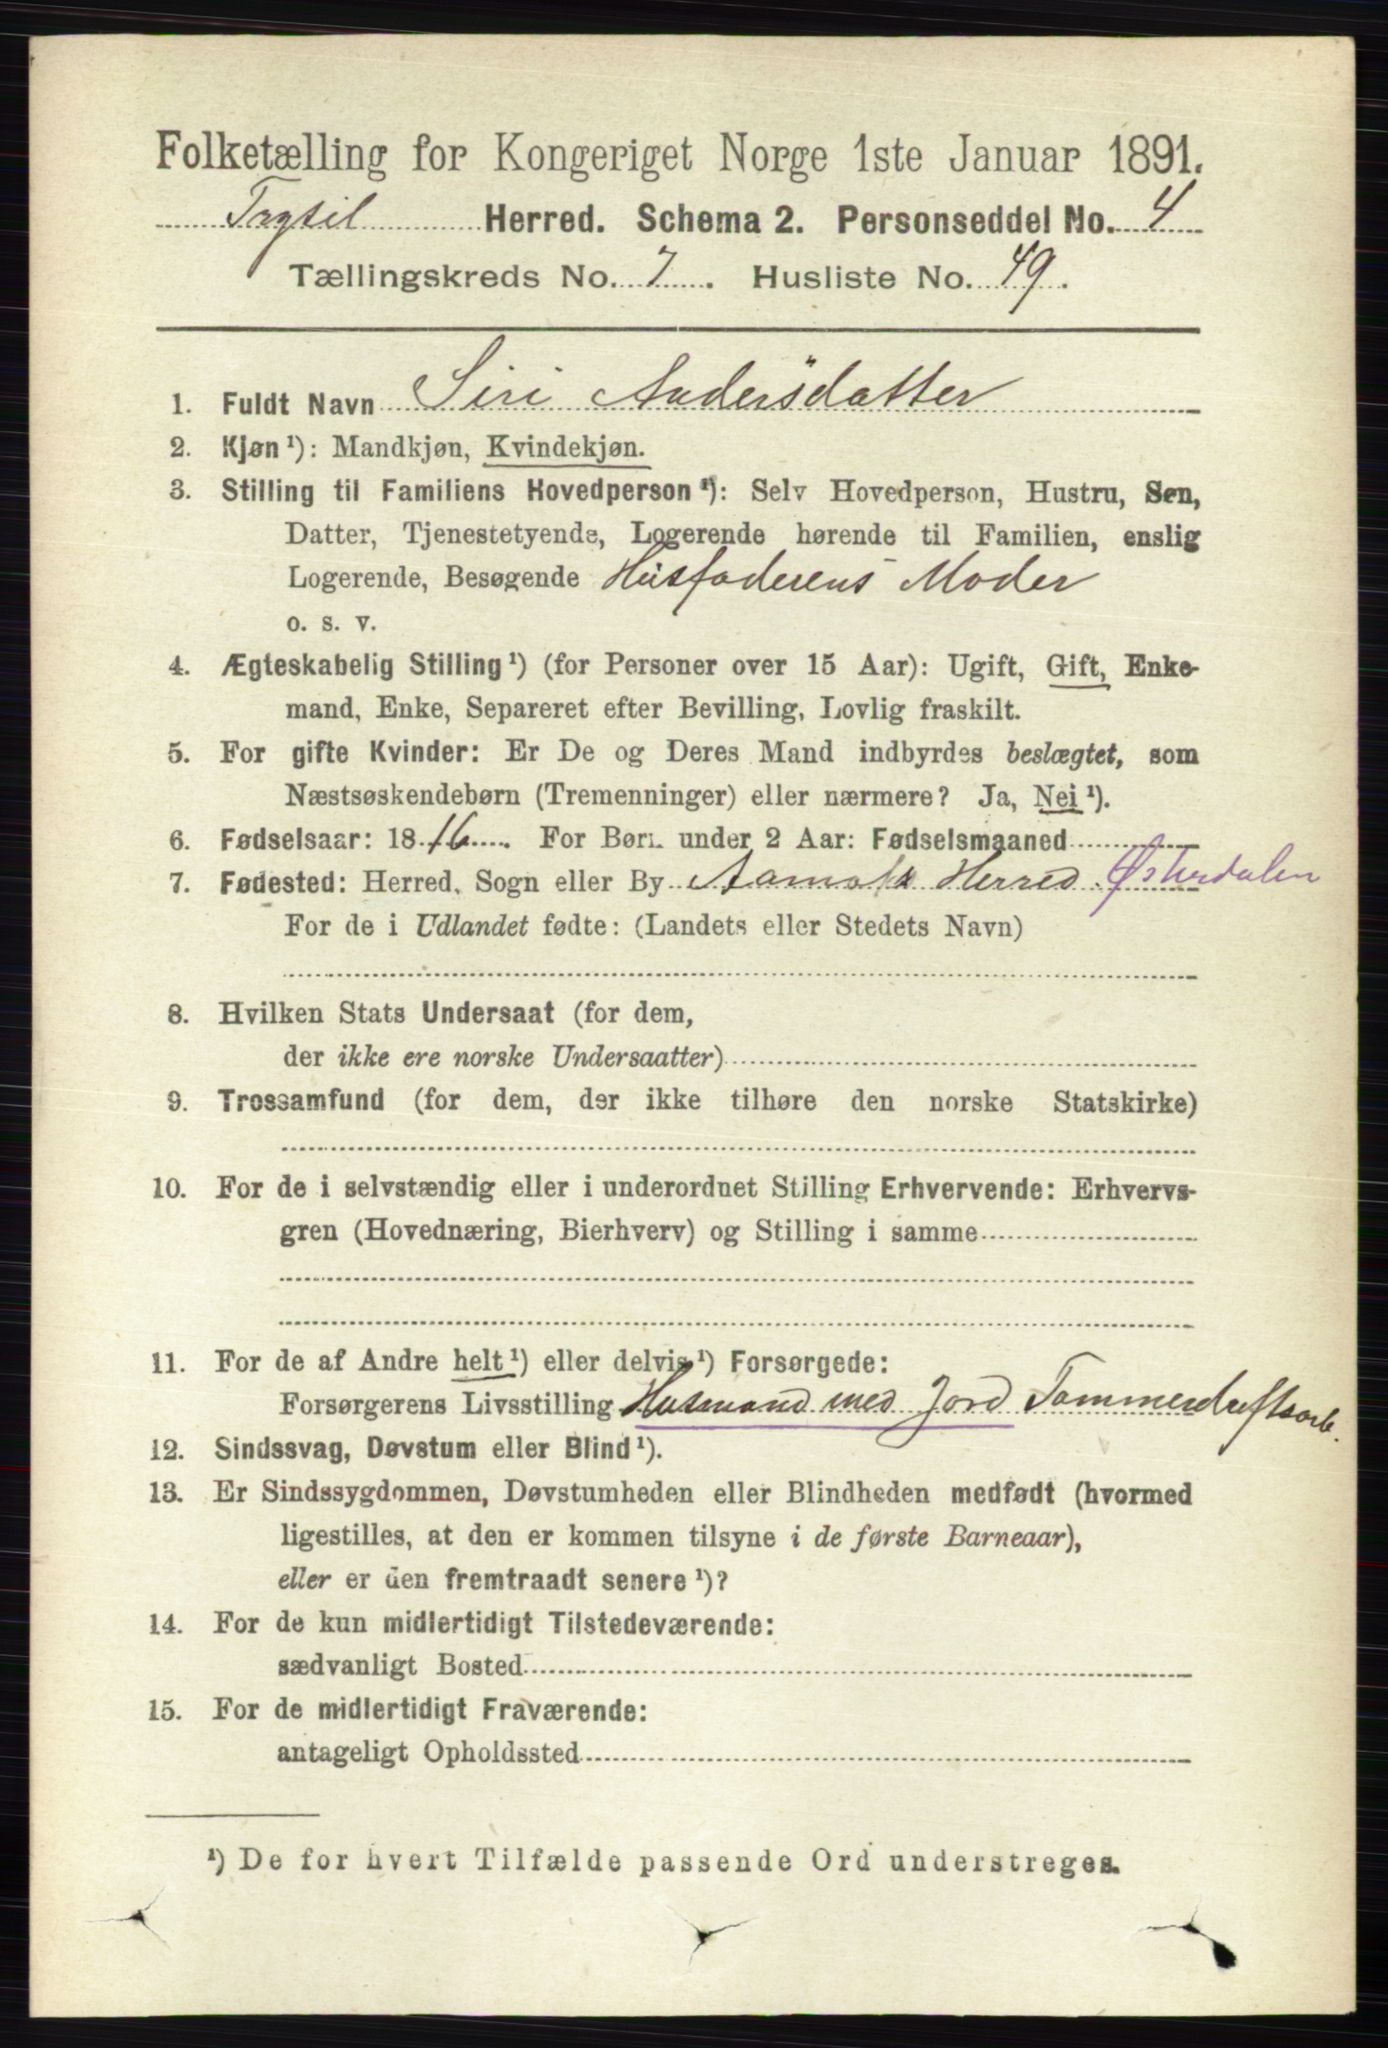 Folketælling for Kongeriget Norge 1ste Januar 1891.
Trysil Herred. Schema 2. Personseddel No. 4
Tællingskreds No. 7. Husliste No. 49.
1. Fuldt Navn Siri Andersdatter
2. Kjøn ¹): Mandkjøn, Kvindekjøn.
3. Stilling til Familiens Hovedperson ¹): Selv Hovedperson, Hustru, Søn,
Datter, Tjenestetyende, Logerende hørende til Familien, enslig
Logerende, Besøgende Husfaderens Moder
o. s. v.
4. Ægteskabelig Stilling ¹) (for Personer over 15 Aar): Ugift, Gift, Enke-
mand, Enke, Separeret efter Bevilling, Lovlig fraskilt.
5. For gifte Kvinder: Er De og Deres Mand indbyrdes beslægtet, som
Næstsøskendebørn (Tremenninger) eller nærmere? Ja, Nei ¹).
6. Fødselsaar: 1816. For Børn under 2 Aar: Fødselsmaaned
7. Fødested: Herred, Sogn eller By Aamots Herred Østerdalen
For de i Udlandet fødte: (Landets eller Stedets Navn)
8. Hvilken Stats Undersaat (for dem,
der ikke ere norske Undersaatter)
9. Trossamfund (for dem, der ikke tilhøre den norske Statskirke)
10. For de i selvstændig eller i underordnet Stilling Erhvervende: Erhvervs-
gren (Hovednæring, Bierhverv) og Stilling i samme
11. For de af Andre helt ¹) eller delvis ¹) Forsørgede:
Forsørgerens Livsstilling Husmand med Jord Tømmerdriftsarb.
12. Sindssvag, Døvstum eller Blind ¹).
13. Er Sindssygdommen, Døvstumheden eller Blindheden medfødt (hvormed
ligestilles, at den er kommen tilsyne i de første Barneaar),
eller er den fremtraadt senere ¹)?
14. For de kun midlertidigt Tilstedeværende:
sædvanligt Bosted
15. For de midlertidigt Fraværende:
antageligt Opholdssted
¹) De for hvert Tilfælde passende Ord understreges.